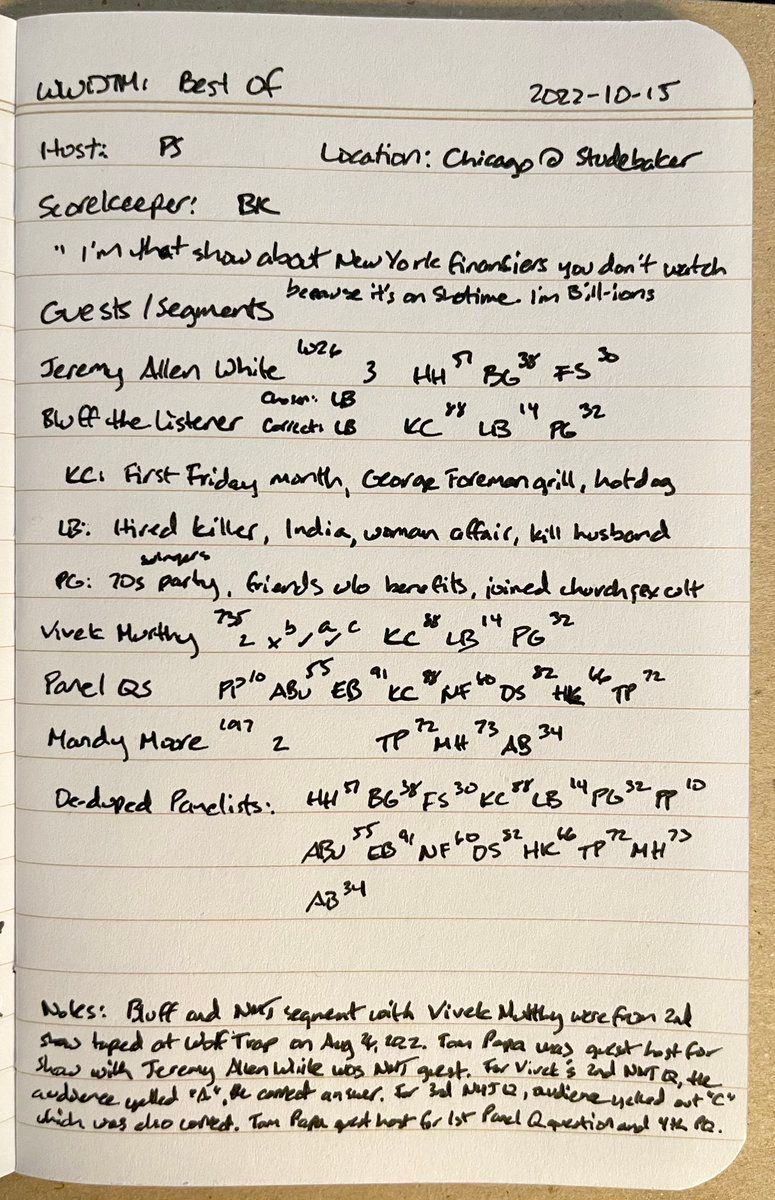 WWDTM: Best Of 2022-10-15
Host: PS Location: Chicago @ Studebaker
Scorekeeper: BK
"I'm that show about New York financiers you don't watch
because it's on Showtime. I'm Bill-ions
Guests / Segments
Jeremy Allen White 1026 3 HH 51 BG 38 FS 30
Bluff the Listener Chosen: LB Correct: LB KC 88 LB 14 PG 32
KC: First Friday month, George Foreman grill, hotdog
LB: Hired killer, India, woman affair, kill husband
PG: 70s swingers party, friends w/o benefits, joined church sex cult
Vivek Murthy 735 2 x b ✓ a ✓ c KC 88 LB 14 PG 32
Panel QS PP 10 ABU 55 EB 91 KC 88 NF 60 DS 82 HK 66 TP 72
Mandy Moore 1097 2 TP 72 MH 73 AB 34
De-duped Panelists: HH 51 BG 38 FS 30 KC 88 LB 14 PG 32 PP 10
ABU 55 EB 91 NF 60 DS 82 HK 66 TP 72 MH 73
AB 34
Notes: Bluff and NMJ segment with Vivek Murthy were from 2nd
show taped at Wolf Trap on Aug 2022. Tom Papa was guest host for
show with Jeremy Allen White was NMJ guest. For Vivek's 2nd NMJ Q, the
audience yelled "A", the correct answer. For 3rd NMJ Q, audience yelled out "C"
which was also correct. Tom Papa guest host for 1st Panel Question and 4th PQ.